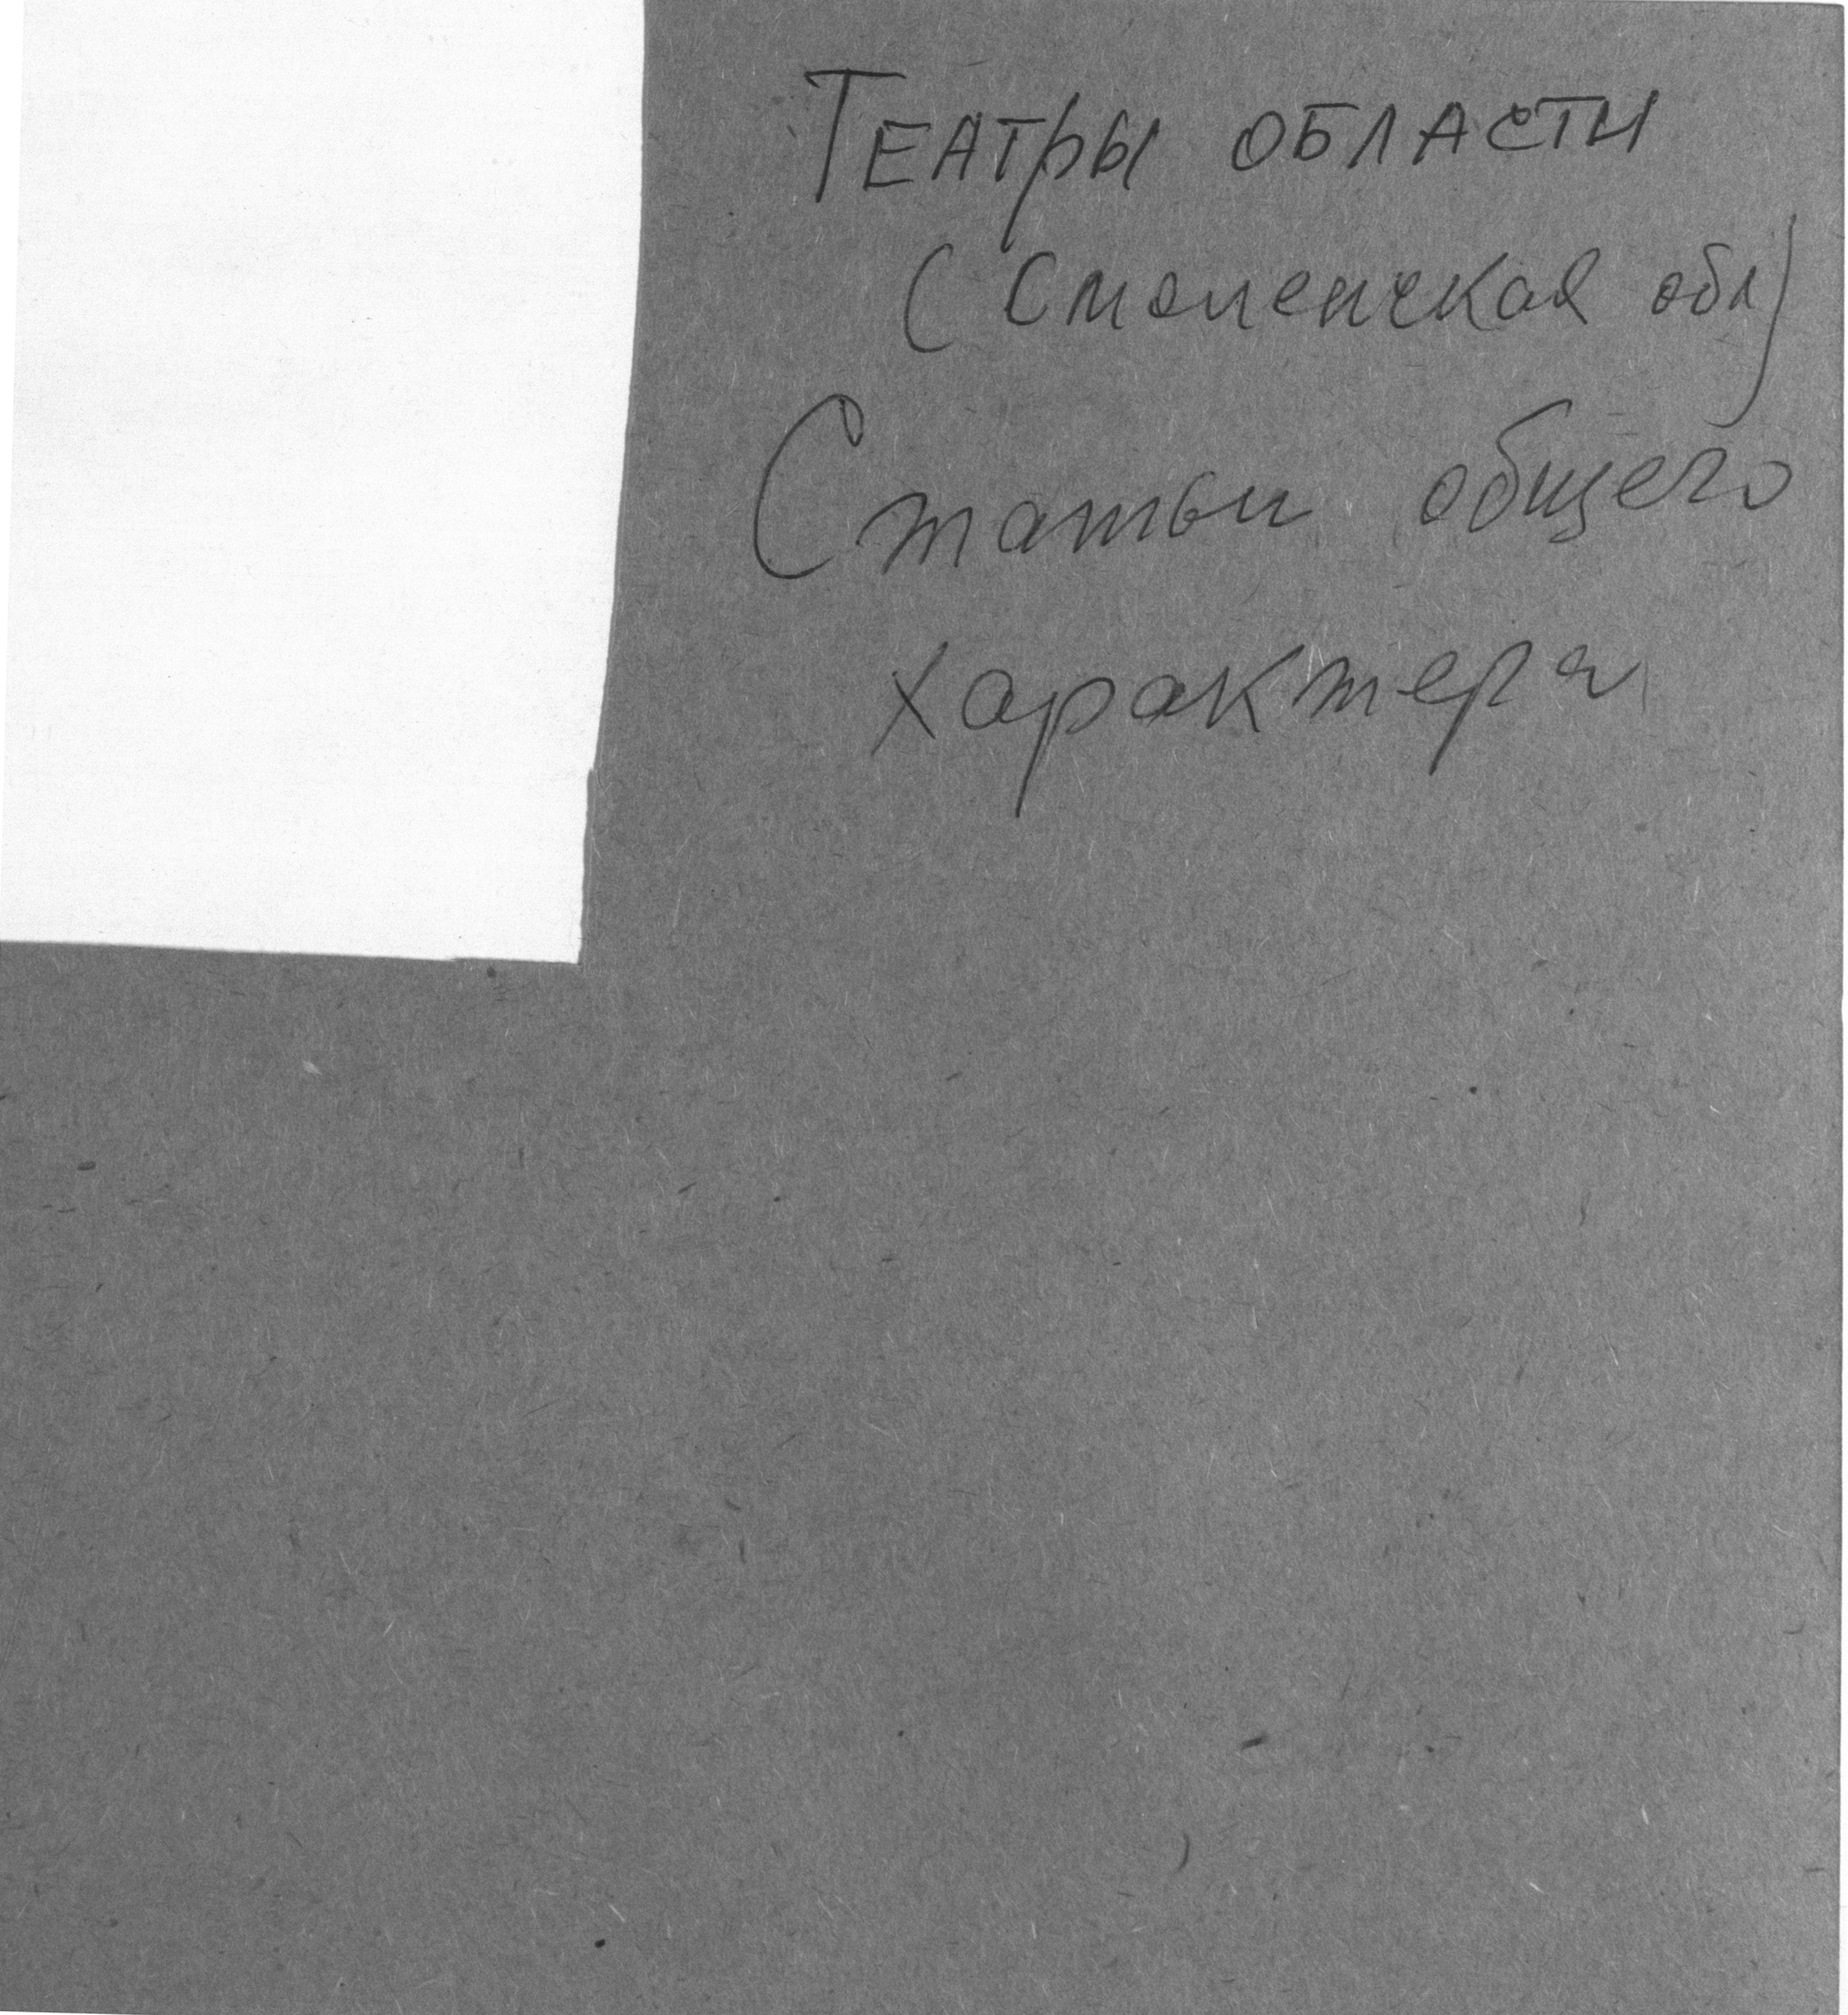 Театры области
(Смоленская обл)
Статьи общего
характера